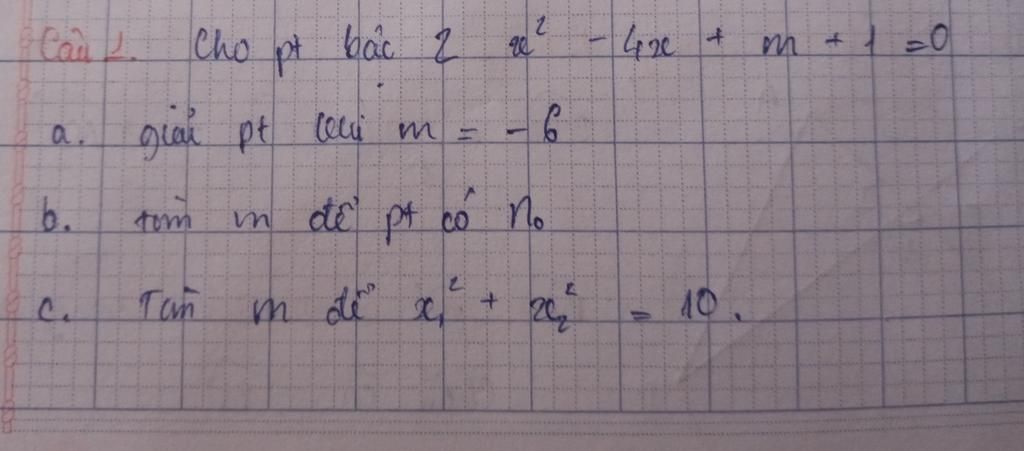 Câu 1. Cho pt bậc 2 x² - 4x + m + 1 = 0
a. giải pt với m = - 6
b. tìm m để pt có n₀
c. Tìm m để x₁² + x₂² = 10.